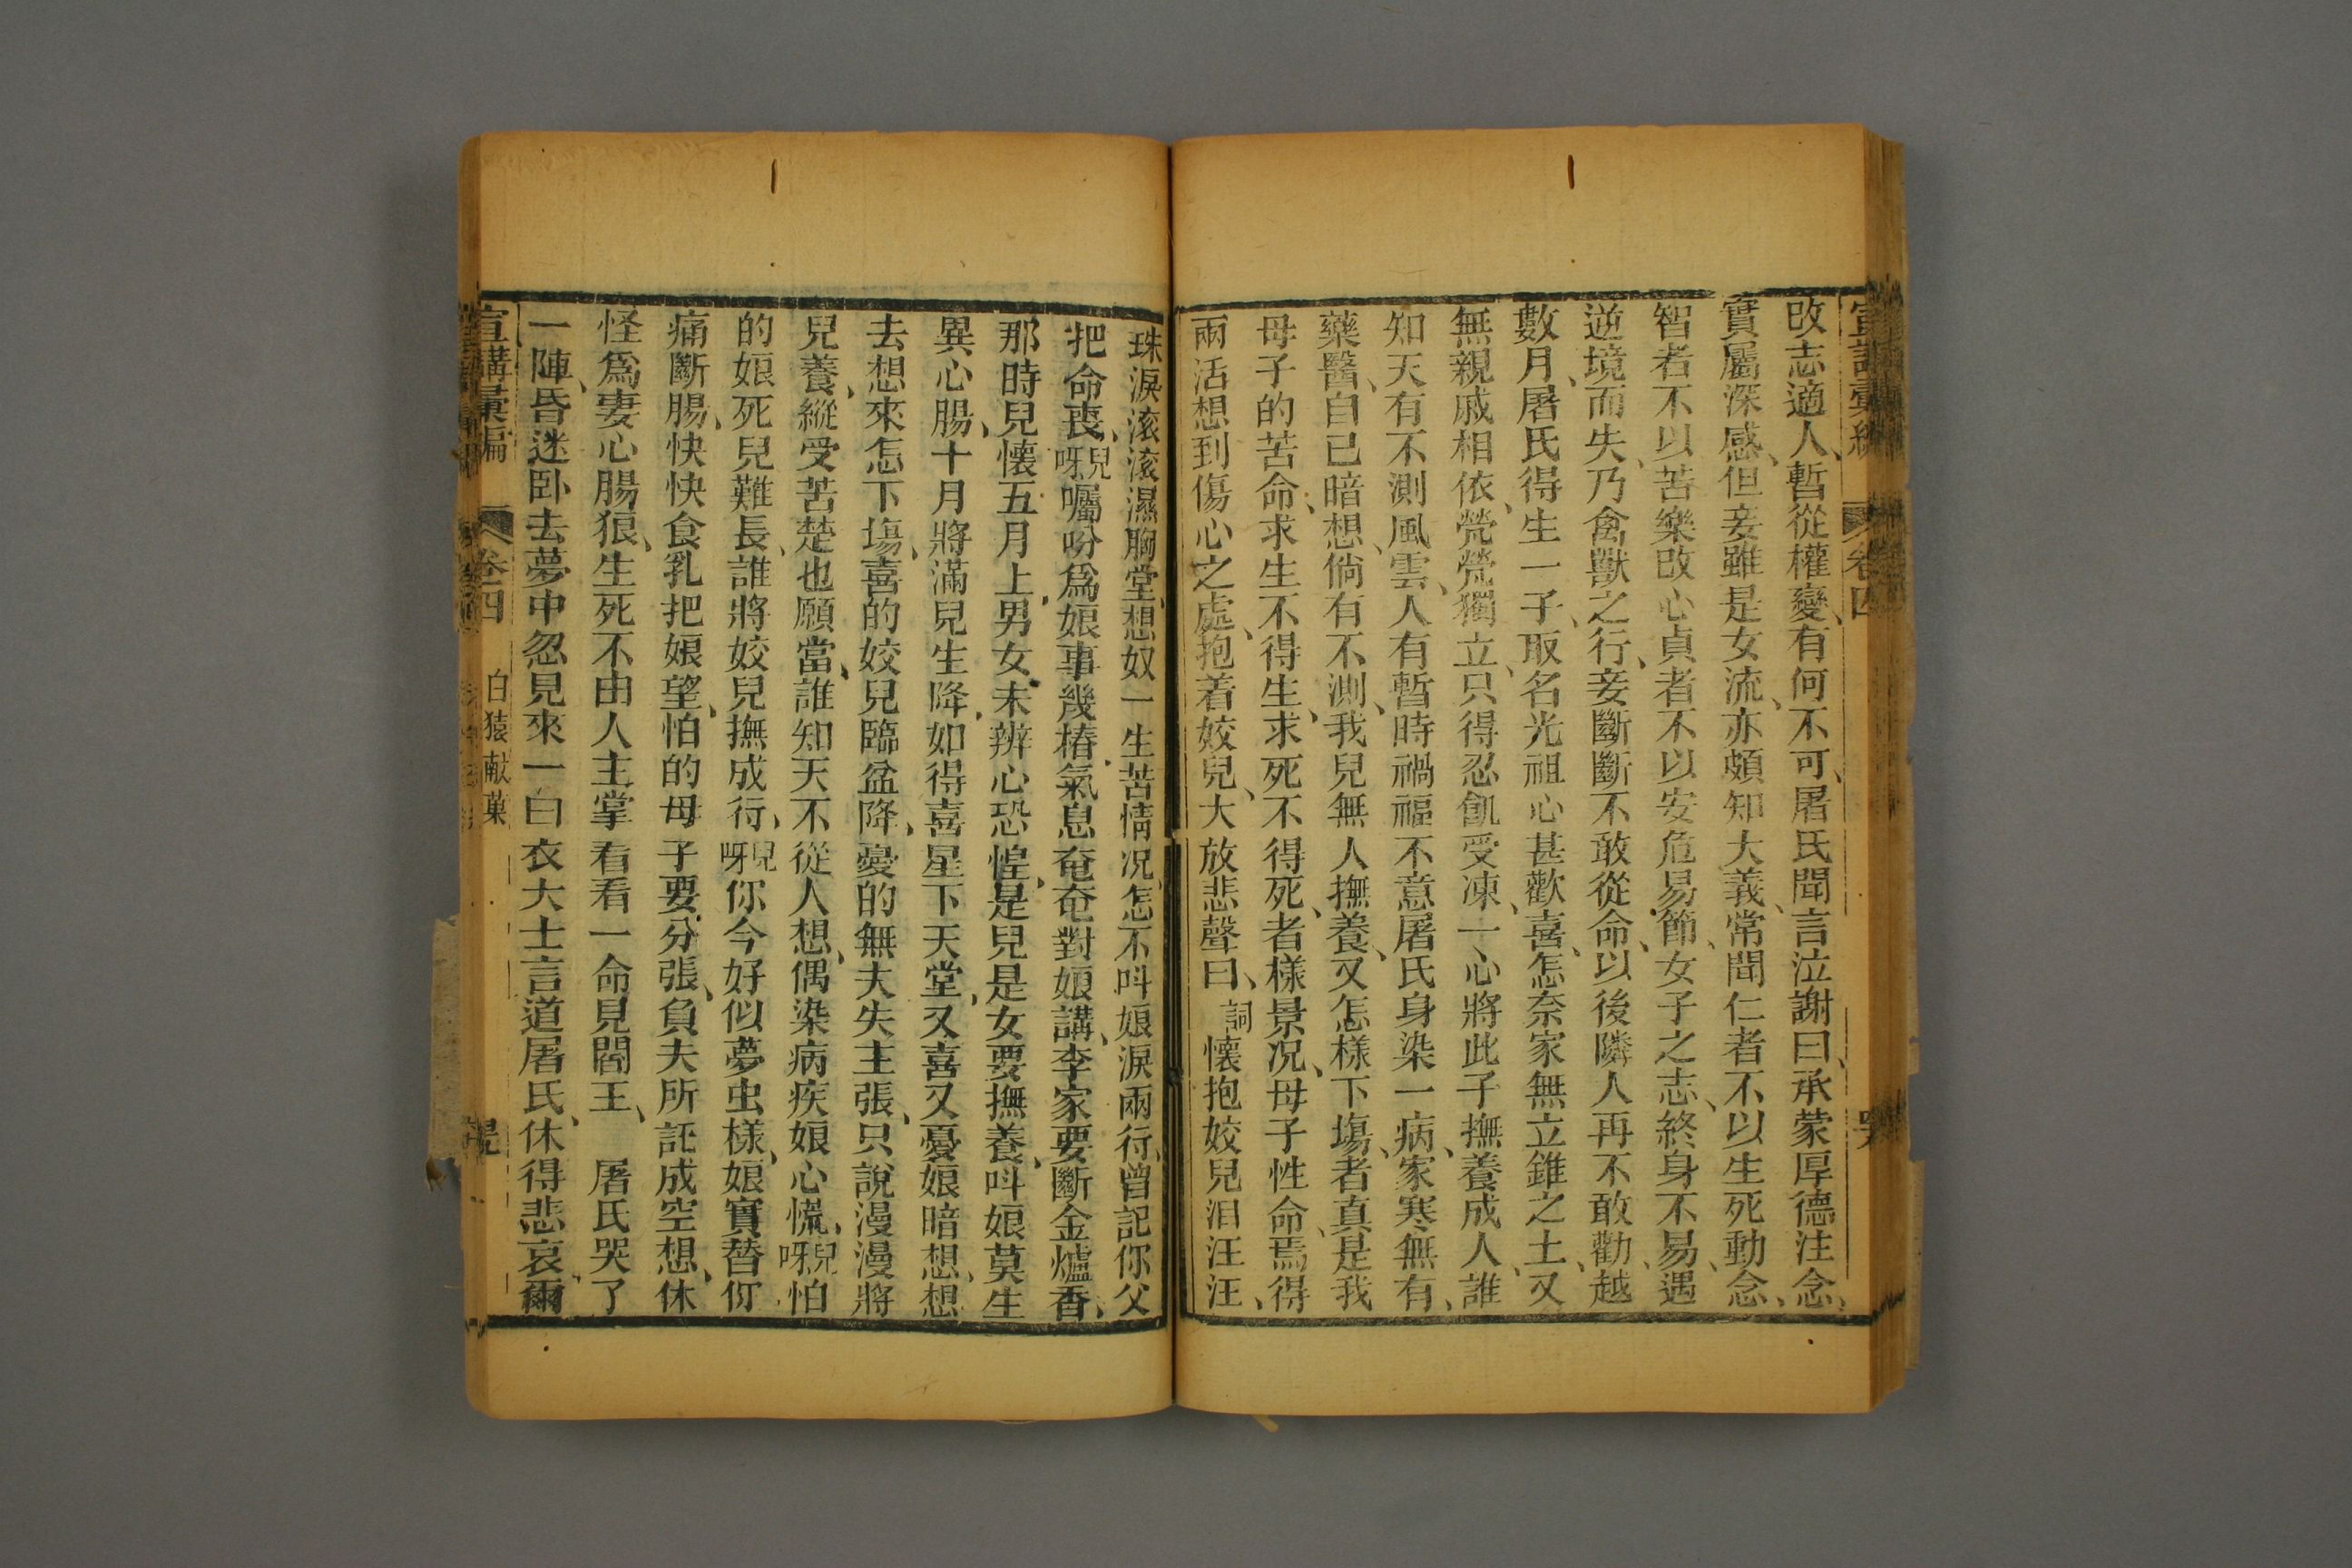 宣講彙編 卷四
改志適人、暫從權變、有何不可、屠氏聞言泣謝曰、承蒙厚德注念、
實屬深感、但妾雖是女流、亦頗知大義、常聞仁者不以生死動念、
智者不以苦樂改心、貞者不以安危易節、女子之志、終身不易、遇
逆境而失、乃禽獸之行、妾斷斷不敢從命、以後隣人再不敢勸、越
數月、屠氏得生一子、取名光祖、心甚歡喜、怎奈家無立錐之土、又
無親戚相依、煢煢獨立、只得忍飢受凍、一心將此子撫養成人、誰
知天有不測風雲、人有暫時禍福、不意屠氏身染一病、家寒無有、
藥醫、自己暗想、倘有不測、我兒無人撫養、又怎樣下塲、者真是我
母子的苦命、求生不得生、求死不得死、者樣景况、母子性命、焉得
兩活、想到傷心之處、抱着姣兒、大放悲聲曰、詞懷抱姣兒泪汪汪、
珠淚滚滚濕胸堂、想奴一生苦情况、怎不呌娘淚兩行、曾記你父
把命喪、兒呀囑吩爲娘事幾樁、氣息奄奄對娘講、李家要斷金爐香、
那時兒懷五月上、男女未辨心恐惶、是兒是女要撫養、呌娘莫生
異心腸、十月將滿兒生降、如得喜星下天堂、又喜又憂娘暗想、想
去想來怎下塲、喜的姣兒臨盆降、憂的無夫失主張、只說漫漫將
兒養、縱受苦楚也願當、誰知天不從人想、偶染病疾娘心慌、兒呀怕
的娘死兒難長、誰將姣兒撫成行、兒呀你今好似夢虫樣、娘實替你
痛斷腸、快快食乳把娘望、怕的母子要分張、負夫所託成空想、休
怪爲妻心腸狠、生死不由人主掌、看看一命見閻王、 屠氏哭了
一陣、昏迷卧去、夢中忽見來一白衣大士、言道屠氏、休得悲哀、爾
宣講彙編 卷四 白猿献菓